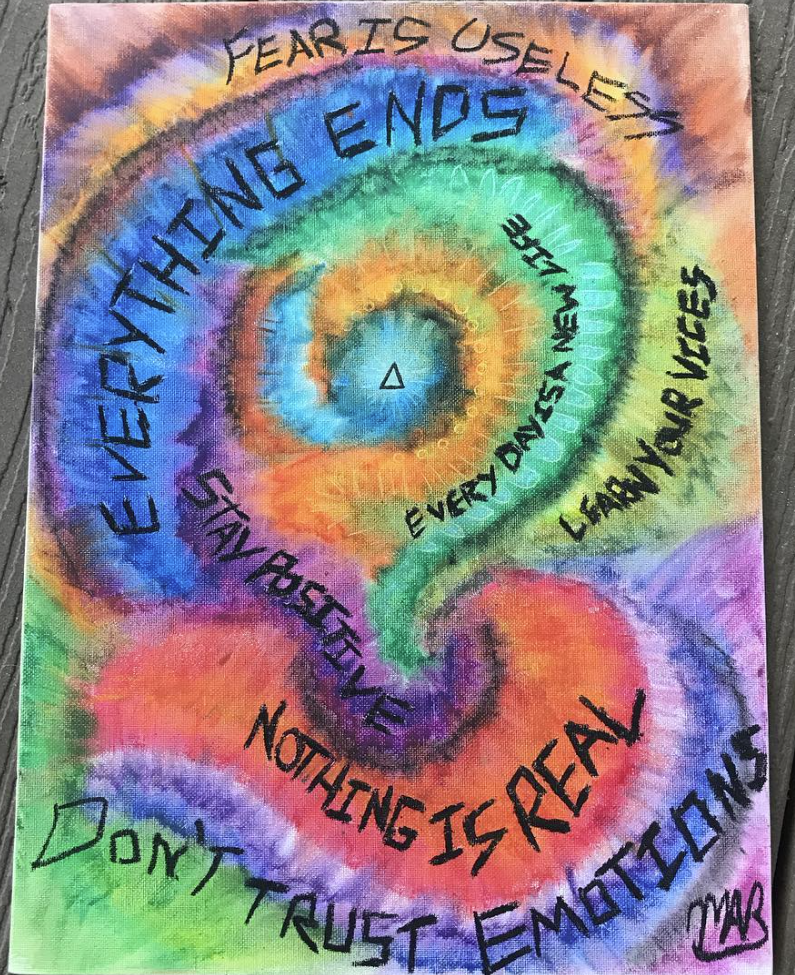 FEAR IS USELESS
EVERYTHING ENDS
EVERY DAY IS A NEW LIFE
LEARN YOUR VICES
STAY POSITIVE
NOTHING IS REAL
DON'T TRUST EMOTIONS
MAB